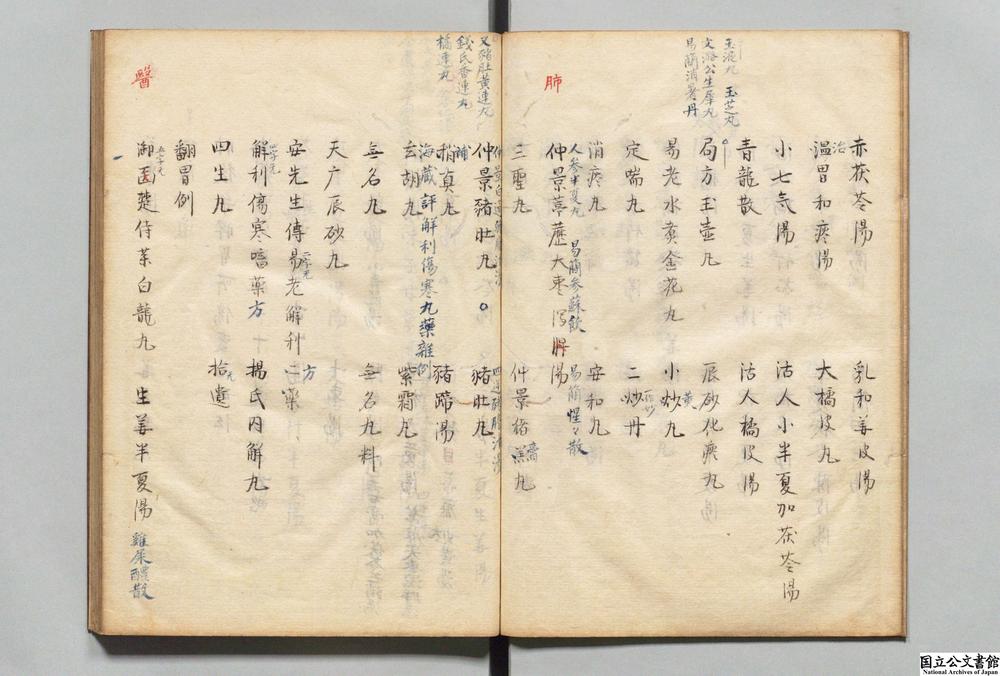 玉芝丸
易簡消暑丹
肺
赤茯苓湯
乳和姜皮湯
治
温胃和痰湯
大橘皮丸
小七气湯
活人小半夏加茯苓湯
青龍散
活人橘皮湯
局方玉壶丸
辰砂化痰丸
易老水煮金花丸
小黄炒丸
定喘丸
二炒丹
消痰丸
安和丸
人参半夏丸
易簡参蘇飲
易簡惺〻散
仲景葶藶大枣瀉肺湯
三聖丸
仲景
又豬肚黄連丸
錢氏香連丸
橘連丸
仲景豬肚丸
豬肚丸
補真丸
豬蹄湯
海蔵評解利傷寒丸藥雑例
玄胡丸
紫霜丸
無名丸
無名丸料
天广辰砂丸
安先生傳易老解利二藥
方
解利傷寒嗜藥方
楊氏内解丸
四生丸
拾遺
翻胃例
醫
御医楚侍菜白龍丸
生姜半夏湯
雞屎醴散
国立公文書館
National Archives of Japan